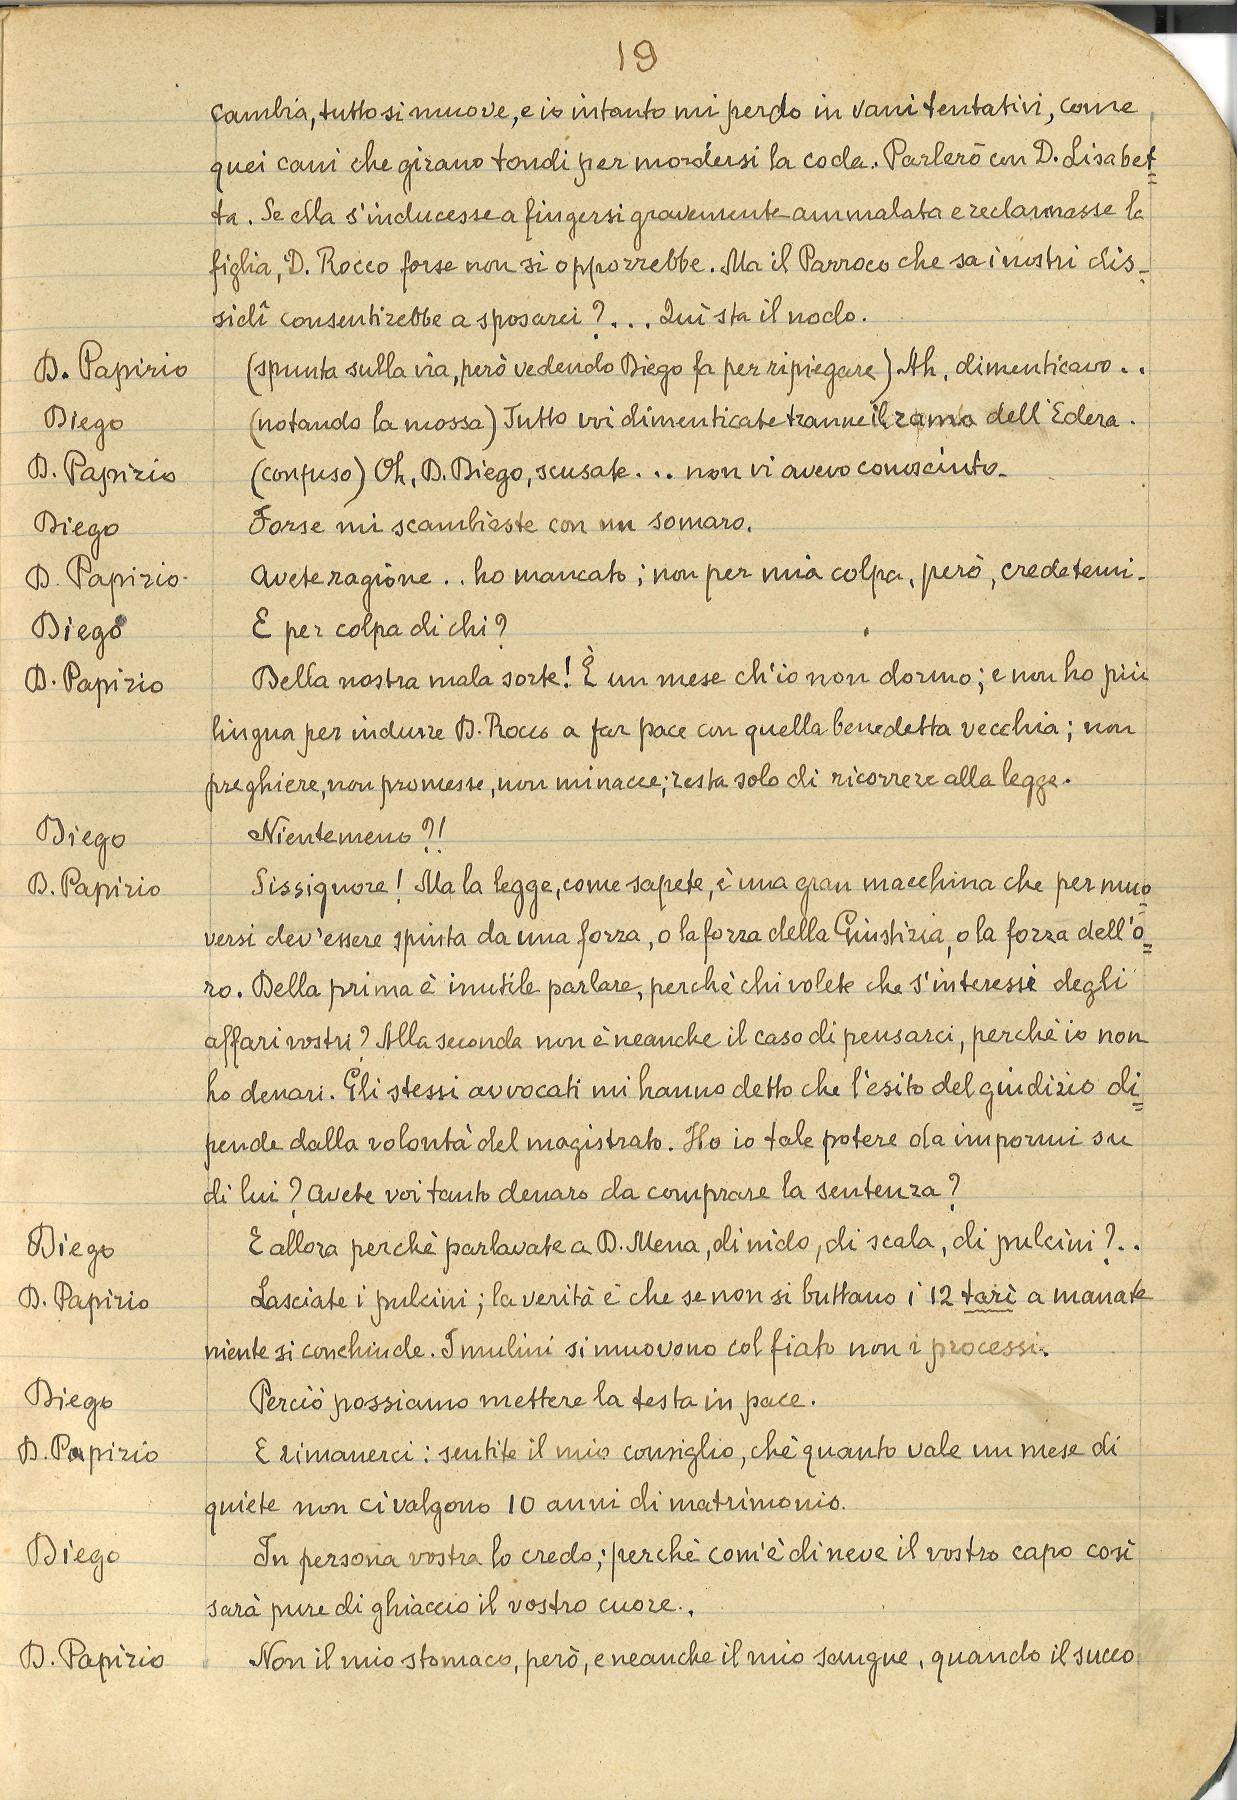 19
cambia, tutto si muove, e io intanto mi perdo in vani tentativi, come
quei cani che girano tondi per mordersi la coda. Parlerò con D. Lisabet=
ta. Se ella s'inducesse a fingersi gravemente ammalata e reclamasse la
figlia, D. Rocco forse non si opporrebbe. Ma il Parroco che sa i nostri dis-
sidî consentirebbe a sposarci?... Quì sta il nodo.
D. Papirio (spunta sulla via, però vedendo Diego fa per ripiegare) Ah, dimenticavo..
Diego (notando la mossa) Tutto voi dimenticate tranne il ramo dell'Edera.
D. Papirio (confuso) Oh, D. Diego, scusate... non vi avevo conosciuto.
Diego Forse mi scambiaste con un somaro.
D. Papirio Avete ragione.. ho mancato; non per mia colpa, però, credetemi.
Diego E per colpa di chi?
D. Papirio Della nostra mala sorte! È un mese ch'io non dormo; e non ho più
lingua per indurre D. Rocco a far pace con quella benedetta vecchia; non
preghiere, non promesse, non minacce; resta solo di ricorrere alla legge.
Diego Nientemeno?!
D. Papirio Sissignore! Ma la legge, come sapete, è una gran macchina che per muo=
versi dev'essere spinta da una forza, o la forza della Giustizia, o la forza dell'o=
ro. Della prima è inutile parlare, perchè chi volete che s'interessi degli
affari vostri? Alla seconda non è neanche il caso di pensarci, perchè io non
ho denari. Gli stessi avvocati mi hanno detto che l'esito del giudizio di=
pende dalla volontà del magistrato. Ho io tale potere da impormi su
di lui? Avete voi tanto denaro da comprare la sentenza?
Diego E allora perchè parlavate a D. Mena, di nido, di scala, di pulcini?..
D. Papirio Lasciate i pulcini; la verità è che se non si buttano i 12 tarì a manate
niente si conchiude. I mulini si muovono col fiato non i processi.
Diego Perciò possiamo mettere la testa in pace.
D. Papirio E rimanerci: sentite il mio consiglio, chè quanto vale un mese di
quiete non ci valgono 10 anni di matrimonio.
Diego In persona vostra lo credo; perchè com'è di neve il vostro capo così
sarà pure di ghiaccio il vostro cuore..
D. Papirio Non il mio stomaco, però, e neanche il mio sangue, quando il succo